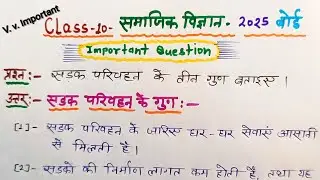 V.v. Important
Class-10- समाजिक विज्ञान- 2025 बोर्ड
Important Question
प्रश्न:- सडक परिवहन के तीन गुण बताइए।
उत्तर:- सडक परिवहन के गुण:-
[1]- सडक परिवहन के जरिए घर-घर सेवाएं आसानी
से मिलती है।
[2]- सडकों की निर्माण लागत कम होती है, तथा यह